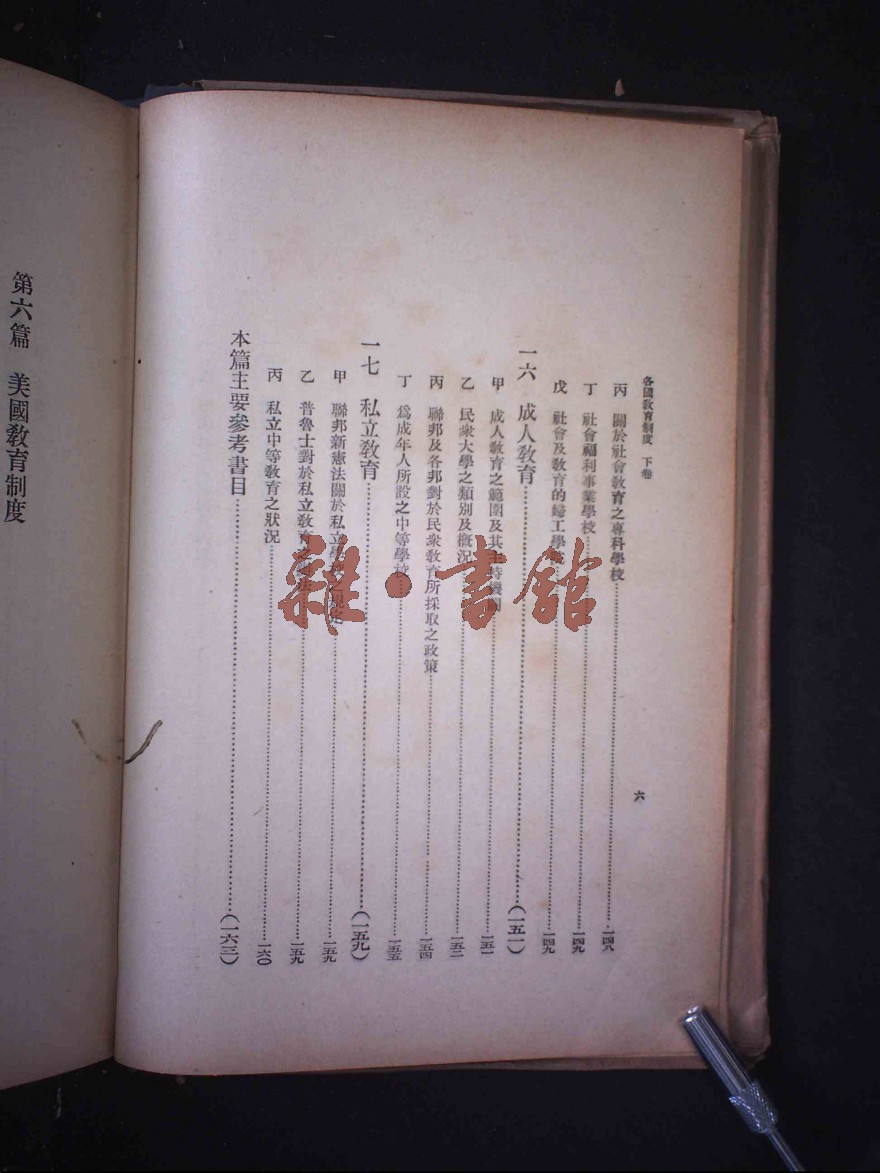 各國教育制度 下卷
六
丙 關於社會教育之專科學校……一四八
丁 社會福利事業學校……一四九
戊 社會及教育的婦工學校……一四九
一六 成人教育……(一五一)
甲 成人教育之範圍及其主持機關……一五一
乙 民衆大學之類別及概況……一五二
丙 聯邦及各邦對於民衆教育所採取之政策……一五四
丁 爲成年人所設之中等學校……一五五
一七 私立教育……(一五九)
甲 聯邦新憲法關於私立學校之規定……一五九
乙 普魯士對於私立教育之……一五九
丙 私立中等教育之狀況……一六〇
本篇主要參考書目……(一六三)
第六篇 美國教育制度
雜·書館